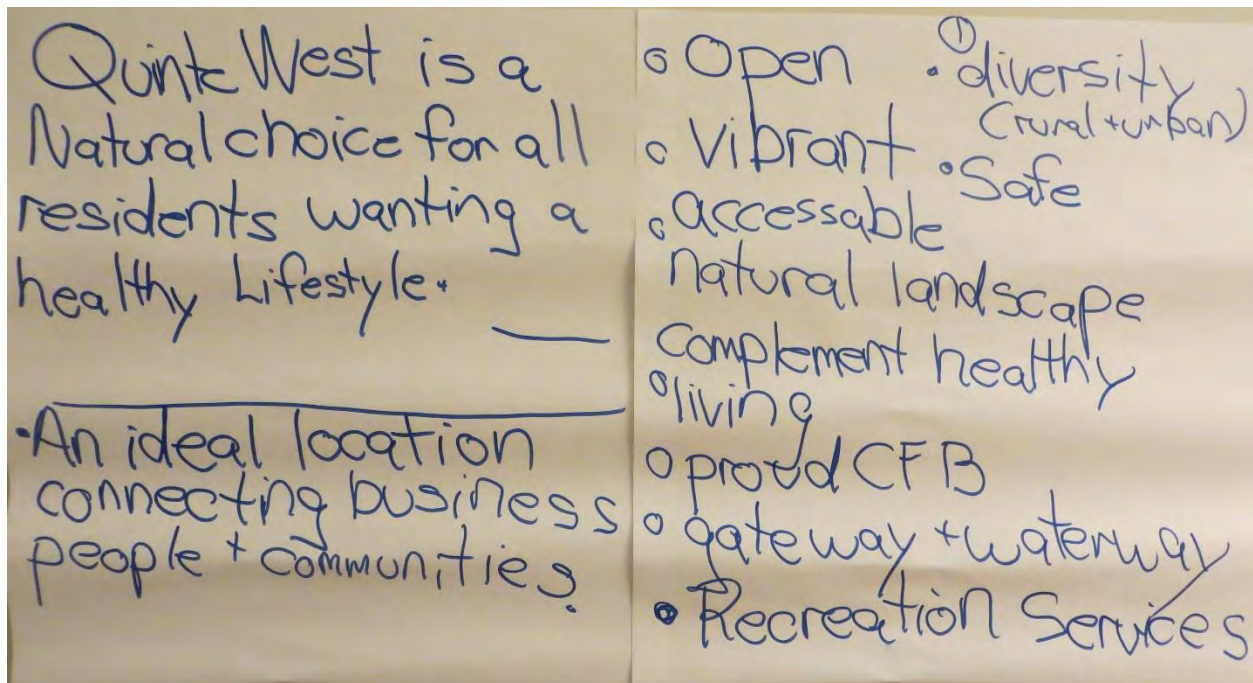 Quinte West is a
Natural choice for all
residents wanting a
healthy Lifestyle.
• An ideal location
connecting business
people + communities.
○ Open
○ Vibrant
○ accessable
natural landscape
complement healthy
○ living
○ proud CFB
○ gateway + waterway
• Recreation Services
①
• diversity
(rural + urban)
• Safe